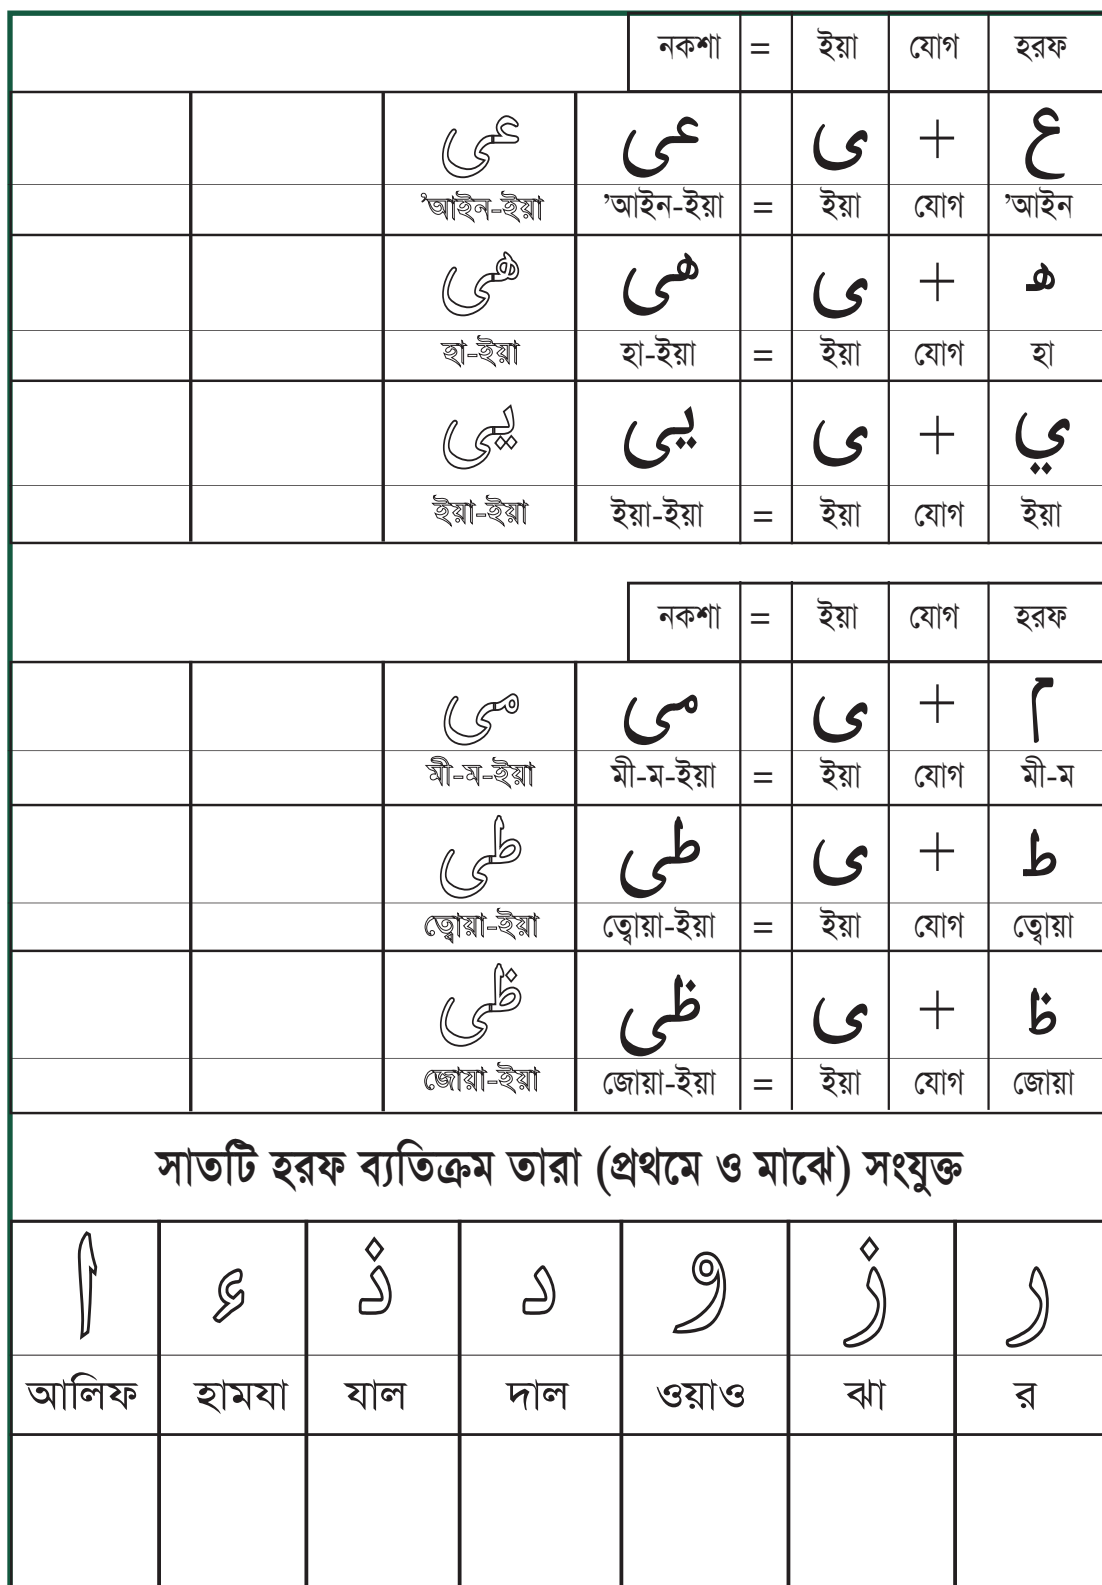 নকশা = ইয়া যোগ হরফ
عى عى ى + ع
’আইন-ইয়া ’আইন-ইয়া = ইয়া যোগ ’আইন
هى هى ى + ه
হা-ইয়া হা-ইয়া = ইয়া যোগ হা
يى يى ى + ي
ইয়া-ইয়া ইয়া-ইয়া = ইয়া যোগ ইয়া
নকশা = ইয়া যোগ হরফ
مى مى ى + م
মী-ম-ইয়া মী-ম-ইয়া = ইয়া যোগ মী-ম
طى طى ى + ط
ত্বোয়া-ইয়া ত্বোয়া-ইয়া = ইয়া যোগ ত্বোয়া
ظى ظى ى + ظ
জোয়া-ইয়া জোয়া-ইয়া = ইয়া যোগ জোয়া
সাতটি হরফ ব্যতিক্রম তারা (প্রথমে ও মাঝে) সংযুক্ত
ا ء ذ د و ز ر
আলিফ হামযা যাল দাল ওয়াও ঝা র